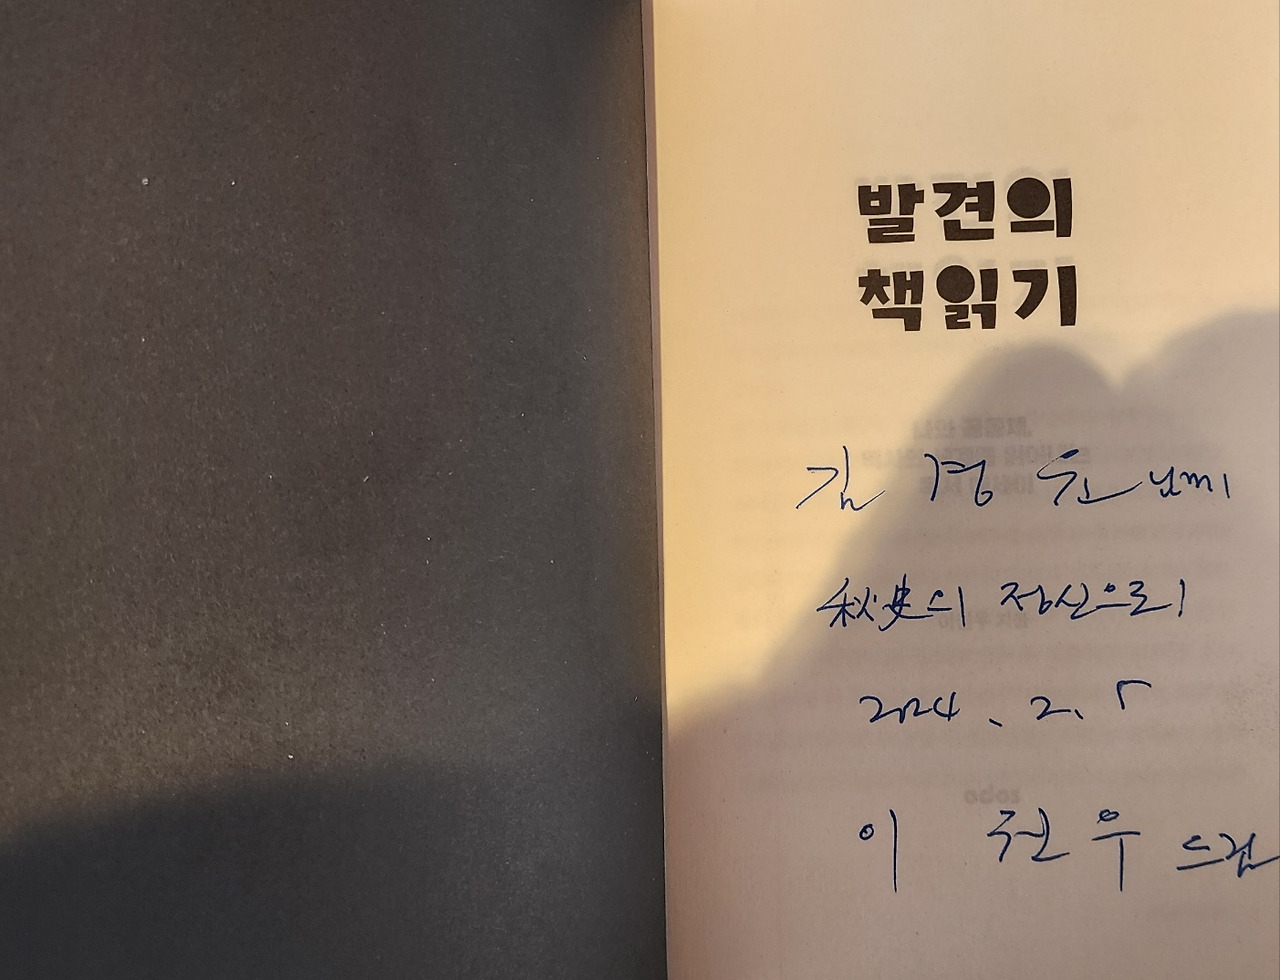 발견의
책읽기
김 경 윤 님께
秋史의 정신으로!
2024. 2. 5
이 권우 드림